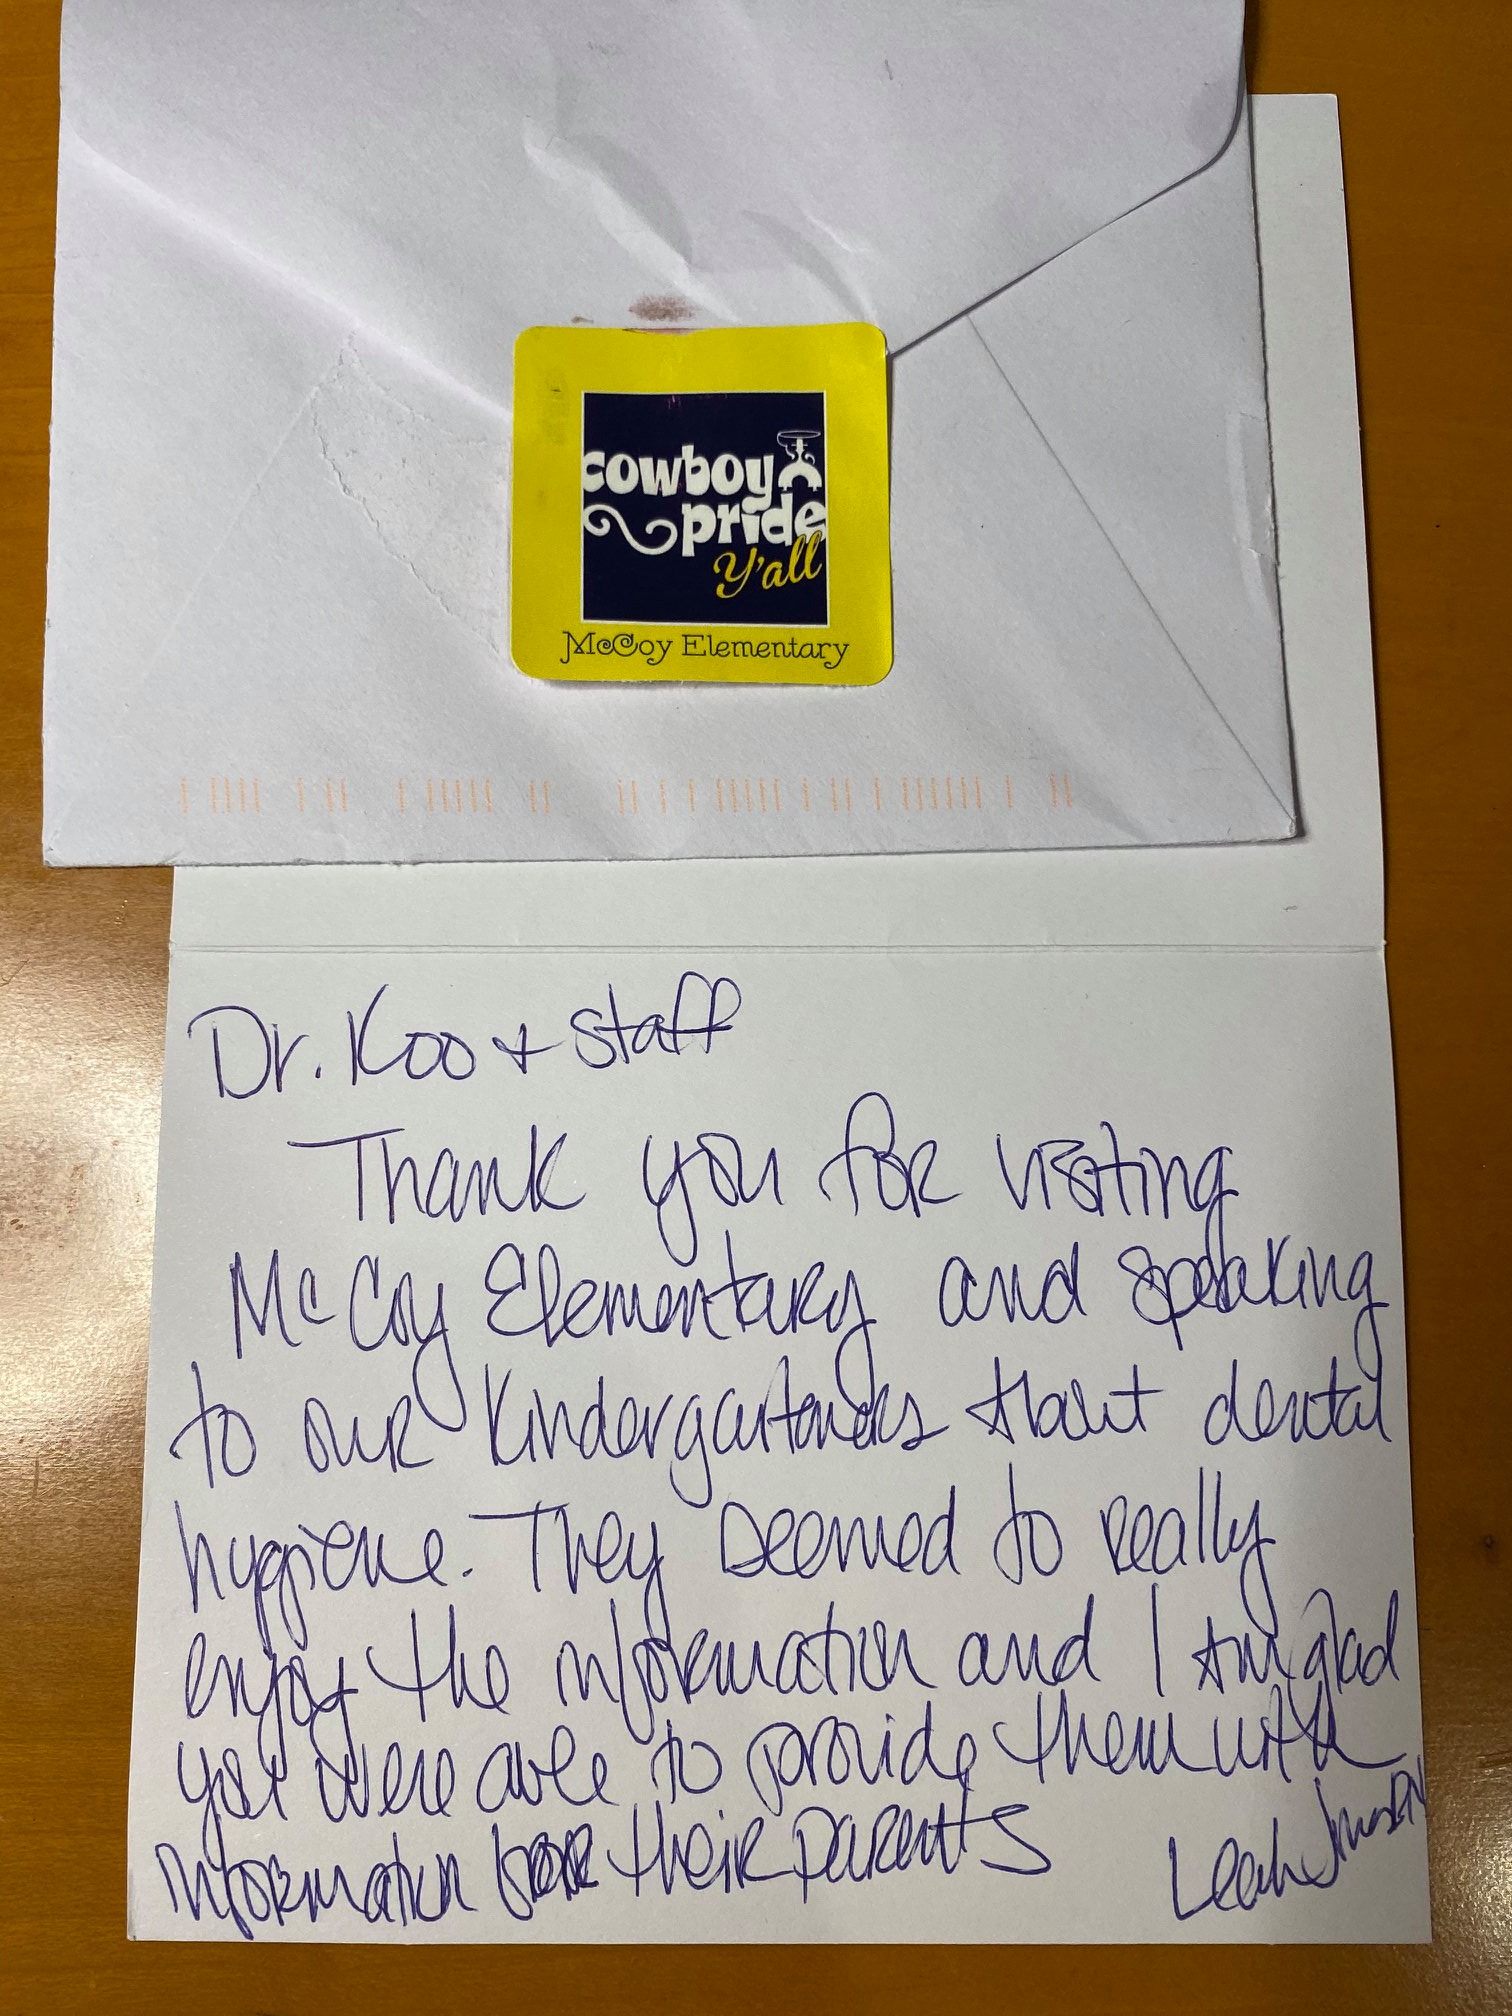 cowboy
pride
Y'all
McCoy Elementary
Dr. Koo + Staff
Thank you for visiting
McCoy Elementary and speaking
to our Kindergarteners about dental
hygiene. They seemed to really
enjoy the information and I am glad
you were able to provide them with
information for their parents
Leah RN